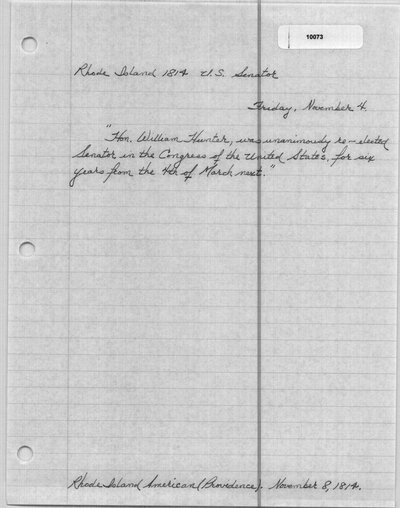 10073
Rhode Island 1814 U.S. Senator
Friday, November 4
"Hon. William Hunter, was unanimously re-elected
Senator in the Congress of the United States, for six
years from the 4th of March next."
Rhode Island American (Providence). November 8, 1814.